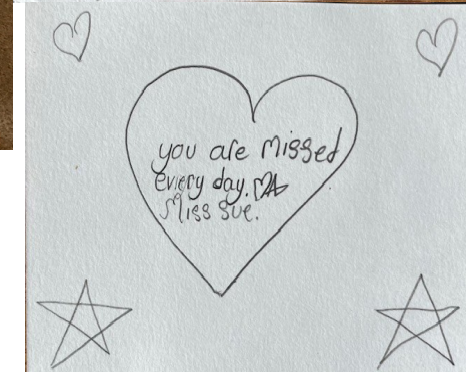 you are missed
every day.
Miss Sue.